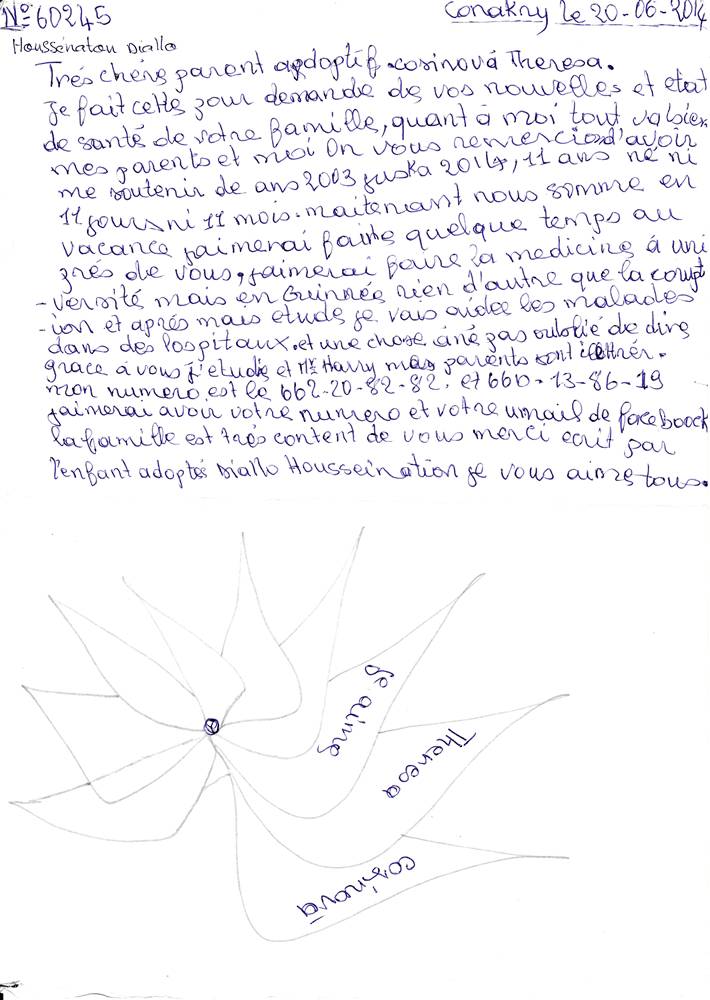 No 60245
Conakry le 20-06-2014
Houssénatou Diallo
Trés chére parent apdoptif cosinová Theresa.
Je fait cette jour demande de vos nouvelles et etat
de santé de votre famille, quant à moi tout va bien
mes parents et moi On vous remercions d'avoir
me soutenir de ans 2003 juska 2014, 11 ans ne ni
11 jours ni 11 mois. maitenant nous somme en
vacance jaimerai faire quelque temps au
prés de vous, jaimerai faire la medicine à uni
-versité mais en Guinnée rien d'autre que la corupt
-ion et aprés mais etude je vais aidée les malades
dans des hospitaux. et une chose àné pas oublié de dire
grace à vous j'etudie et Mr Harry mes parents sont illettrér.
mon numero est le 662-20-82-82. et 660-13-86-19
jaimerai avoir votre numero et votre umail de faceboock
la famille est trés content de vous merci ecrit par
l'enfant adoptés Diallo Housseination je vous aime tous.
Je aime
Theresa
cosinová